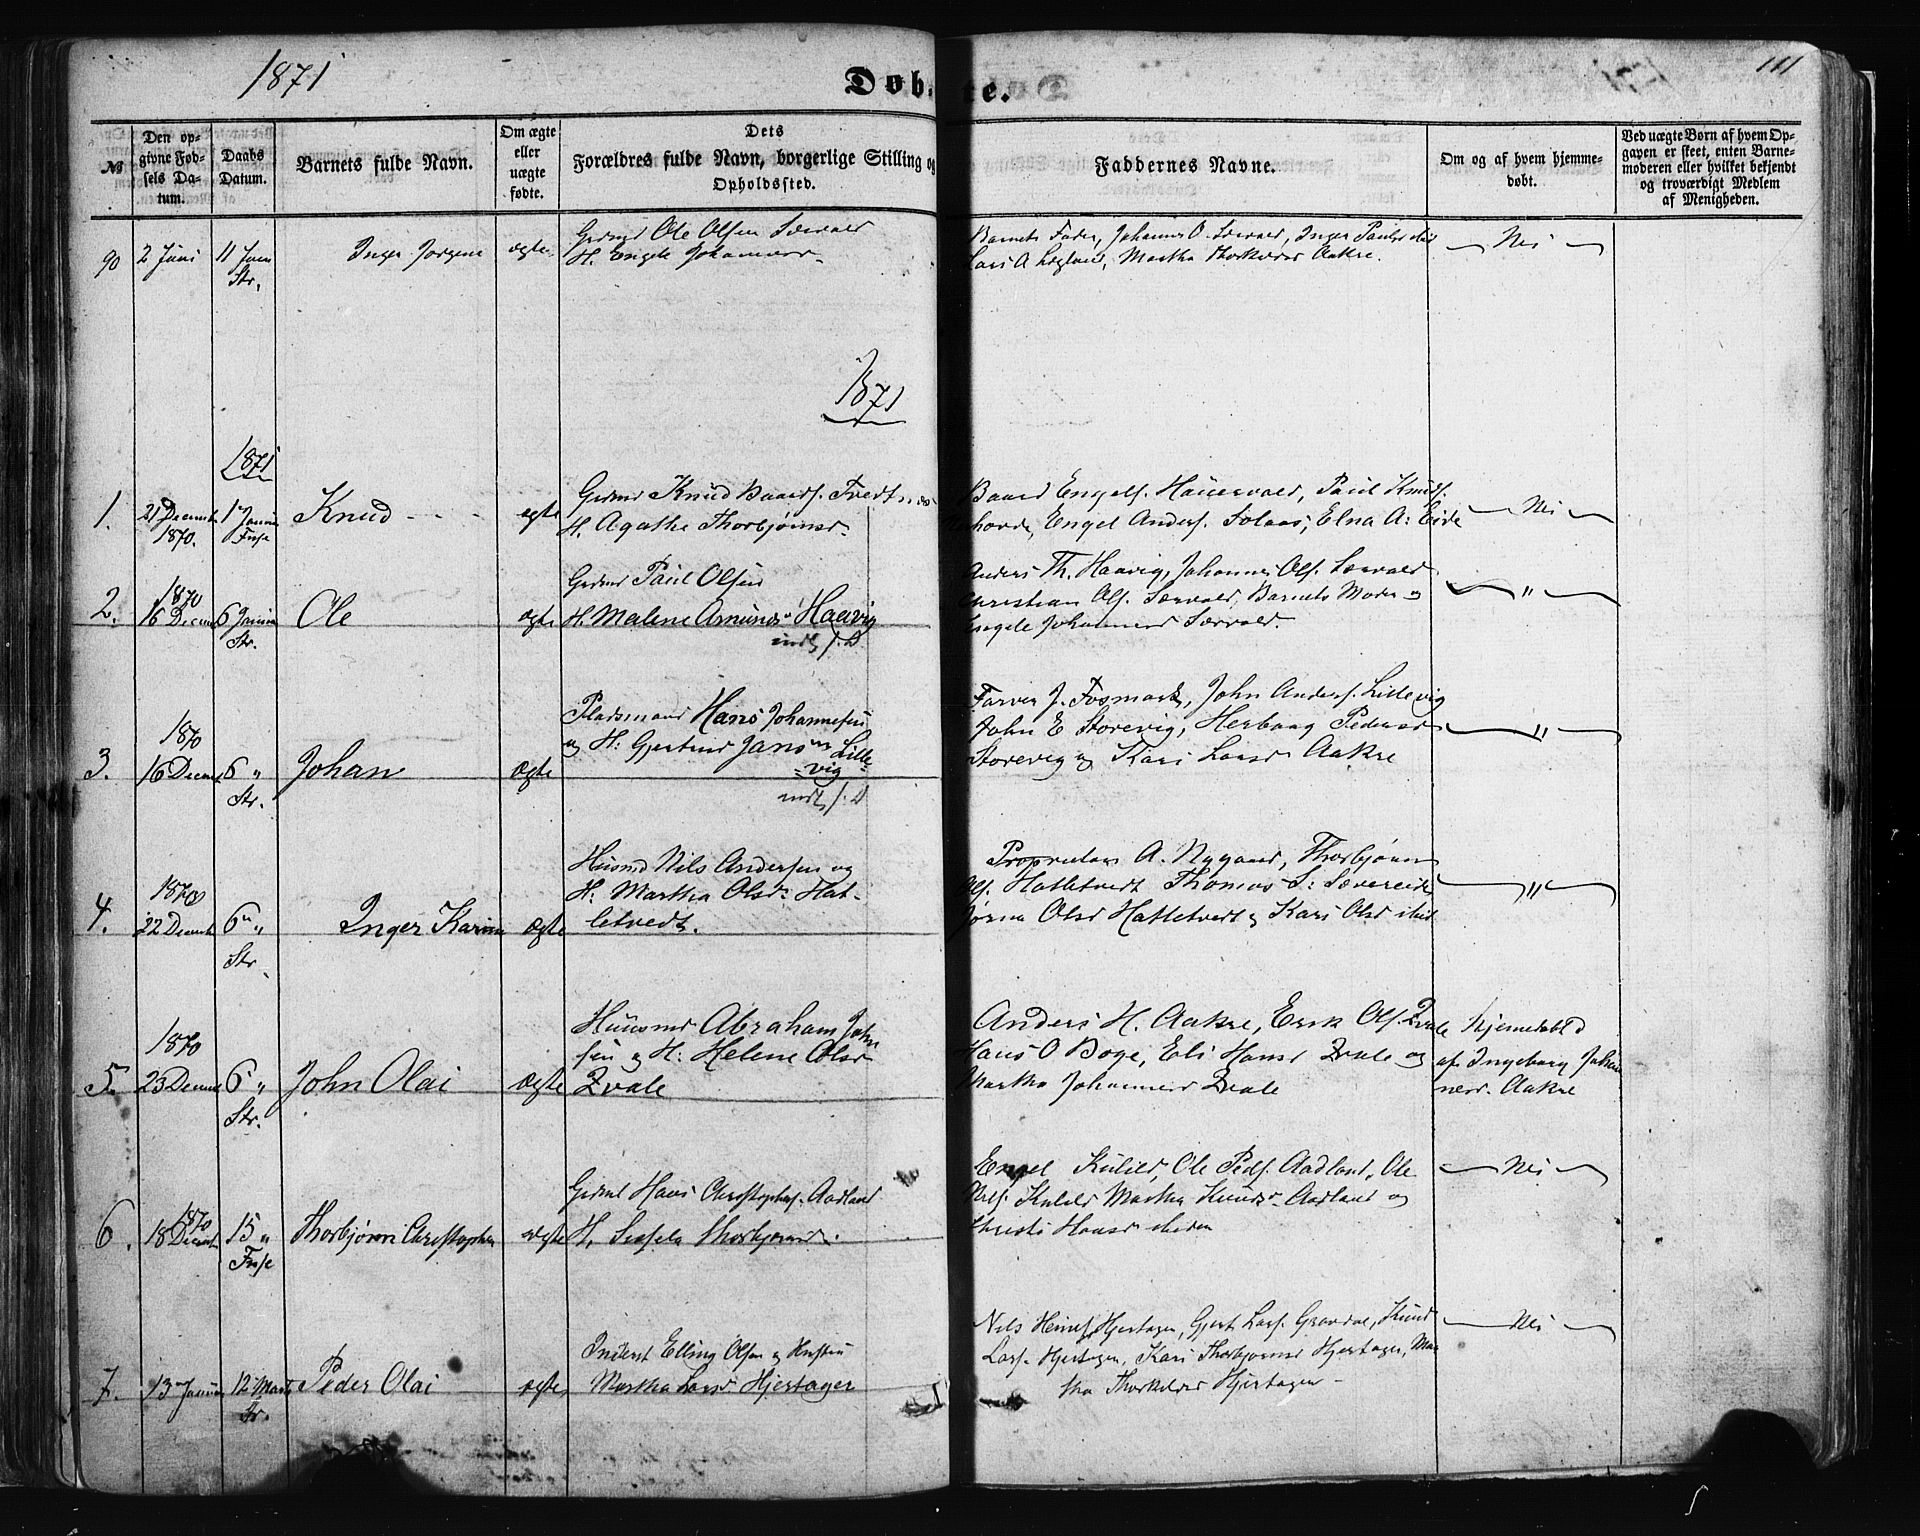 1871
Døbte.
111
№
Den op-
givne Fød-
sels Da-
tum.
Daabs
Datum.
Barnets fulde Navn.
Om ægte
eller
uægte
fødte.
Dets
Forældres fulde Navn, borgerlige Stilling og
Opholdssted.
Faddernes Navne.
Om og af hvem hjemme-
døbt.
Ved uægte Børn af hvem Op-
gaven er skeet, enten Barne-
moderen eller hvilket bekjendt
og troværdigt Medlem
af Menigheden.
90 2 Juni 11 Juni
Str.
Inger Jørgine ægte
Grdmd Ole Olsen Sævald
H. Engele Johannesd
Barnets Fader, Johannes O. Sævald, Inger Paulsd
Lars A Legland, Martha Thorkelsd Aakre.
Nei
1871
1871
1. 21 Decemb 1870. 1 Januar
Fuse
Knud ægte
Grdmd Knud Baards.
H. Agathe Thorbjørnsd.
Baard Engels. Hauesvald, Paul Knuds.
Engel Anders. Solaas, Elna A: Eide
Nei
2. 1870
16 Decemb 6 Januar
Str.
Ole ægte
Grdmd Paul Olsen
H. Malene Amunds Haavig
indt f. D
Anders Th. Haavig, Johannes Ols. Sævald
Christian Ols. Sævald, Barnets Moder og
Engele Johannesd Sævald.
"
3. 1870
16 Decemb 6 "
Str.
Johan ægte
Pladsmand Hans Johannesen
og H: Gjertrud Jansdr Lille-
vig
indt f. D
Farver J. Fosmark, John Anders. Lillevig
John E Storevig, Herborg Pedersd
Storevig og Kari Larsd Aakre
"
4. 1870
22 Decemb 6 "
Str.
Inger Karine ægte
Husmd Nils Andersen og
H. Martha Olsdr Hat-
letvedt.
Proprietær A. Nygaard, Thorbjørn
Ols. Hatletvedt Thomas S: Sævereide
Jørna Olsd Hatletvedt og Kari Olsd ibid
"
5. 1870
23 Decemb 6 "
Str.
John Olai ægte
Huusmd Abraham John
sen og H: Helene Olsdr
Qvale
Anders H. Aakre, Erik Ols. Qvale
Hans O Boge, Eli Hansd Qvale og
Martha Johannesd Qvale
hjemedøbt
af Ingeborg Johan
nesd. Aakre
6. 1870
18 Decemb 15 "
Fuse
Thorbjørn Christopher ægte
Grdmd Hans Christophers. Aadland
H. Sissela Thorbjørnsd.
Engel Kulild, Ole Peds. Aadland, Ole
Nils. Kulild Martha Knudsd. Aadland og
Christi Hansd ibidem
Nei
7. 13 Januar 12 Marts
Str.
Peder Olai ægte
Inderst Elling Olsen og Hustru
Martha Larsd Hjertager
Nils Heines. Hjertager, Gjert Lars. Gravdal, Knud
Lars. Hjertager, Kari Thorbjørnsd Hjertager, Mar
tha Thorkelsd Hjertager
Nei